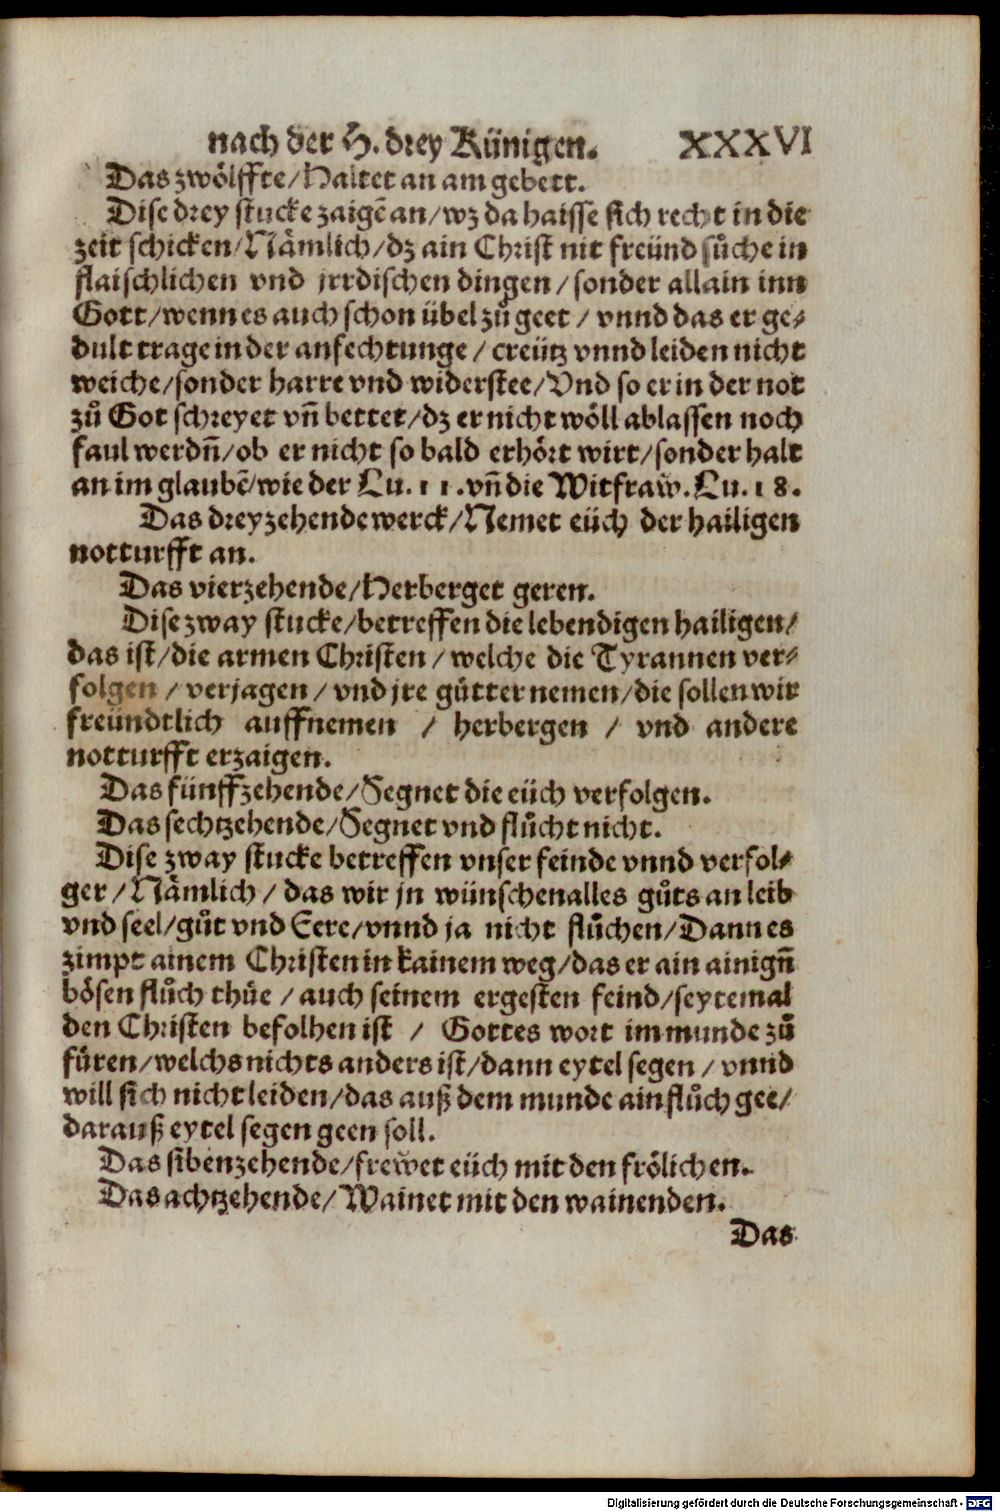 nach der H. drey Künigen. XXXVI
Das zwölffte/Haltet an am gebett.
Dise drey stucke zaigē an/wz da haisse sich recht in die
zeit schicken/Nämlich/dz ain Christ nit freünd sůche in
flaischlichen vnd jrrdischen dingen/sonder allain inn
Gott/wenn es auch schon übel zů geet/vnnd das er ge-
dult trage in der anfechtunge/creütz vnnd leiden nicht
weiche/sonder harre vnd widerstee/Vnd so er in der not
zů Got schreyet vñ bettet/dz er nicht wöll ablassen noch
faul werdñ/ob er nicht so bald erhört wirt/sonder halt
an im glaubē/wie der Lu. 11. vñ die Witfraw. Lu. 18.
Das dreyzehende werck/Nemet eüch der hailigen
notturfft an.
Das vierzehende/Herberget geren.
Dise zway stucke/betreffen die lebendigen hailigen/
das ist/die armen Christen/welche die Tyrannen ver-
folgen/verjagen/vnd jre gütter nemen/die sollen wir
freündtlich auffnemen/herbergen/vnd andere
notturfft erzaigen.
Das fünffzehende/Segnet die eüch verfolgen.
Das sechtzehende/Segnet vnd flůcht nicht.
Dise zway stucke betreffen vnser feinde vnnd verfol-
ger/Nämlich/das wir jn wünschen alles gůts an leib
vnd seel/gůt vnd Eere/vnnd ja nicht flůchen/Dann es
zimpt ainem Christen in kainem weg/das er ain ainigñ
bösen flůch thüe/auch seinem ergesten feind/seytemal
den Christen befolhen ist/Gottes wort im munde zů
füren/welchs nichts anders ist/dann eytel segen/vnnd
will sich nicht leiden/das auß dem munde ain flůch gee/
darauß eytel segen geen soll.
Das sibenzehende/frewet eüch mit den frölichen.
Das achtzehende/Wainet mit den wainenden.
Das
Digitalisierung gefördert durch die Deutsche Forschungsgemeinschaft - DFG